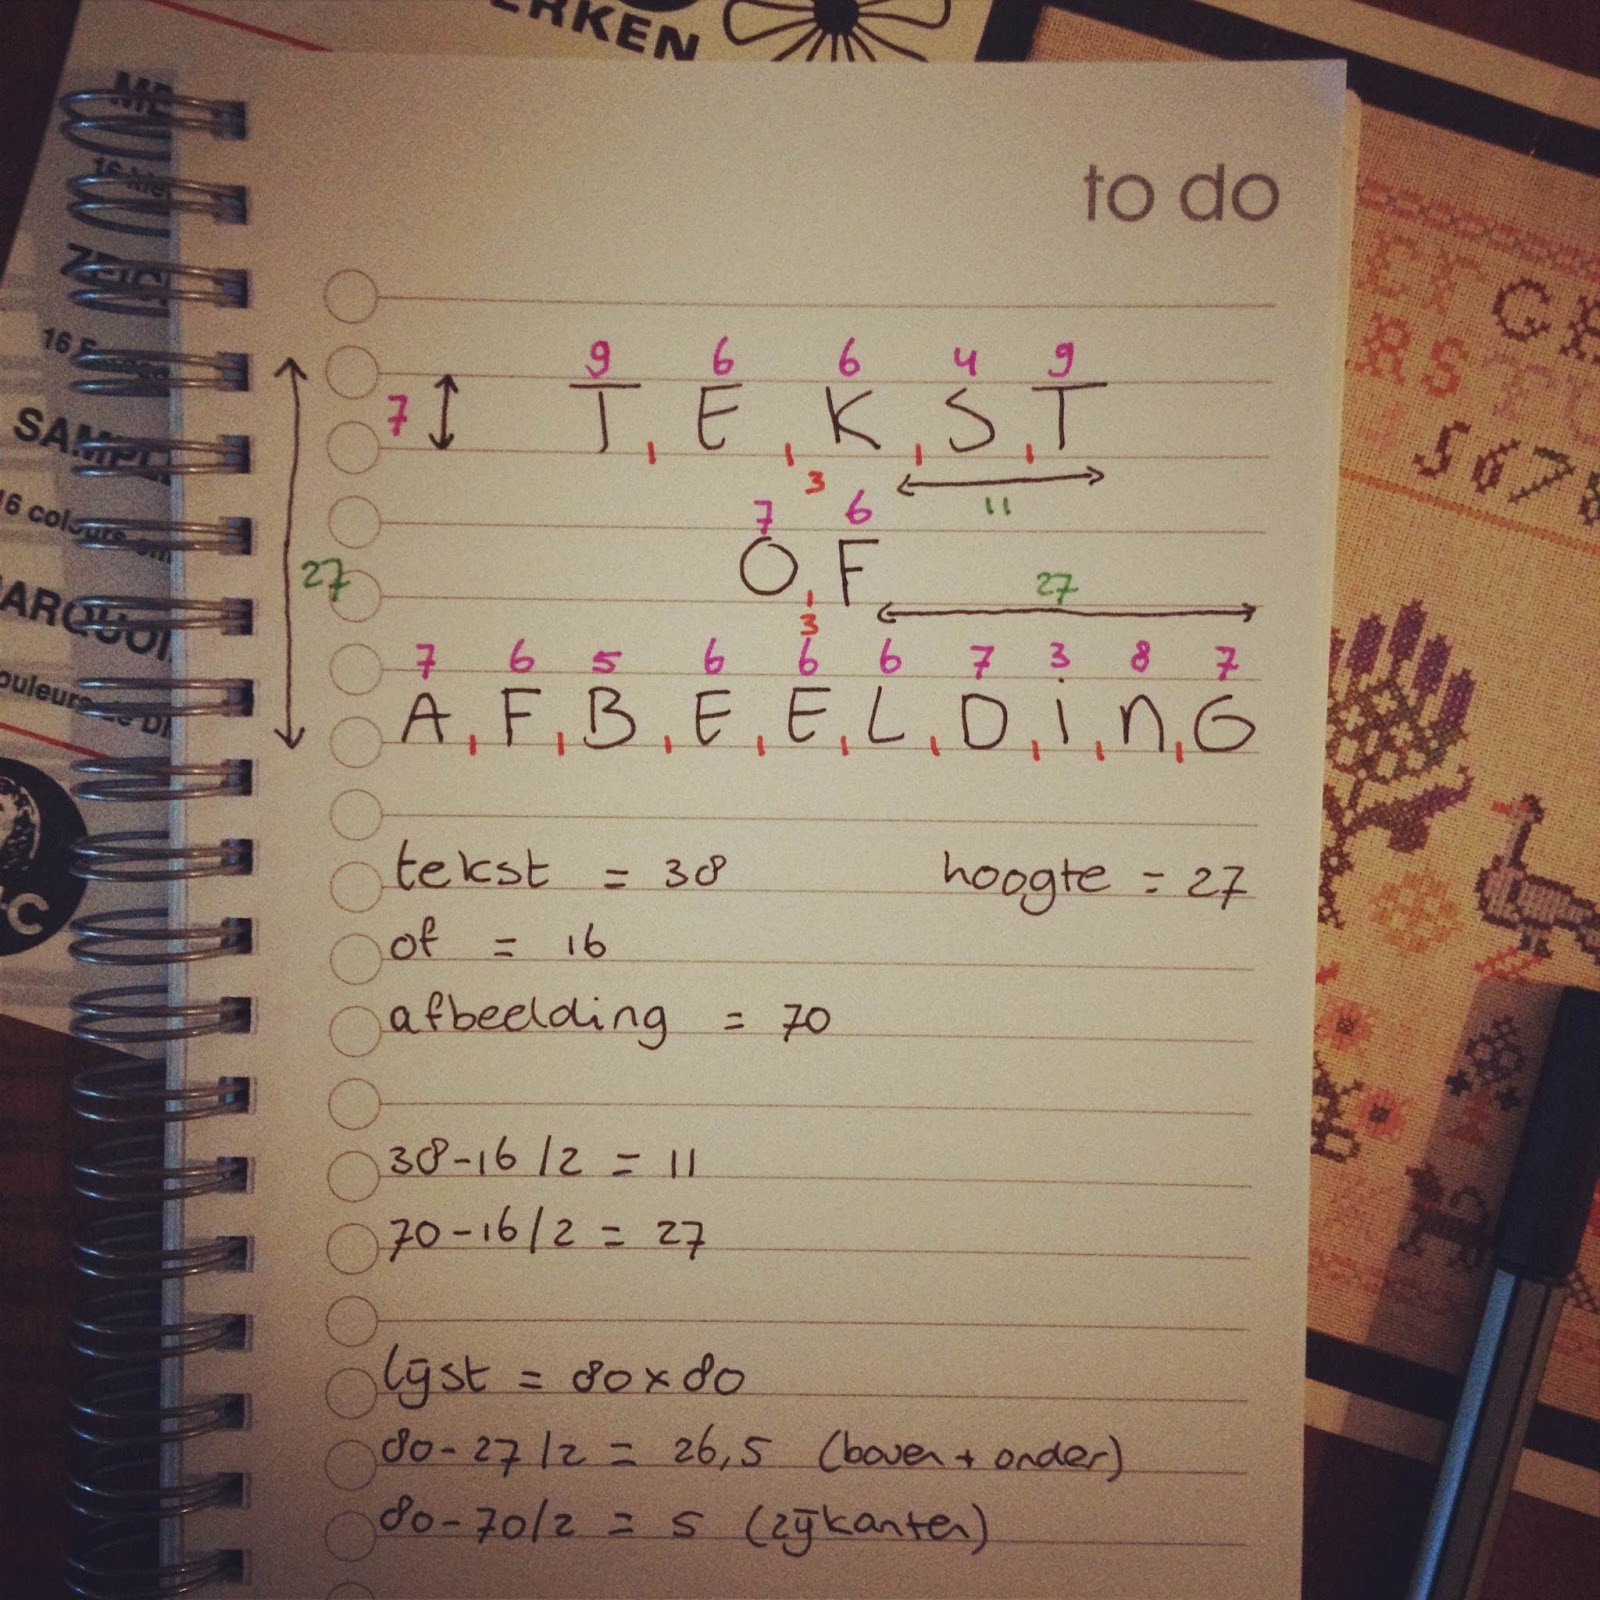 ERKEN
to do
ER G
RS
5678
16
ZEIC
16
SAMPL
16 colours
ARQUOI
ouleurs de
C
9 6 6 4 9
7 T E K S T
3 11
7 6
O F
27 3 27
7 6 5 6 6 6 7 3 8 7
A F B E E L D i n G
tekst = 38 hoogte = 27
of = 16
afbeelding = 70
38-16/2 = 11
70-16/2 = 27
lijst = 80x80
80-27/2 = 26,5 (boven + onder)
80-70/2 = 5 (zijkanten)